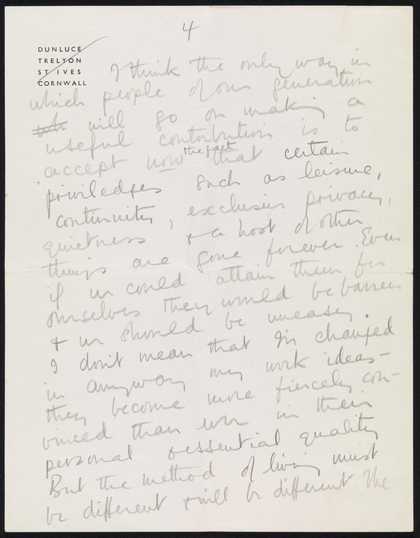 4
DUNLUCE
TRELYON
ST IVES
CORNWALL
I think the only way in
which people of our generation
will go on making a
useful contribution is to
accept now the fact that certain
priviledges such as leisure,
continuity, exclusive privacy,
quietness & a host of other
things are gone forever. Even
if we could attain them for
ourselves they would be barren
& we should be uneasy.
I don't mean that I'm changed
in anyway my work ideas –
they become more fiercely con-
vinced than ever in their
personal & essential quality
But the method of living must
be different & will be different the